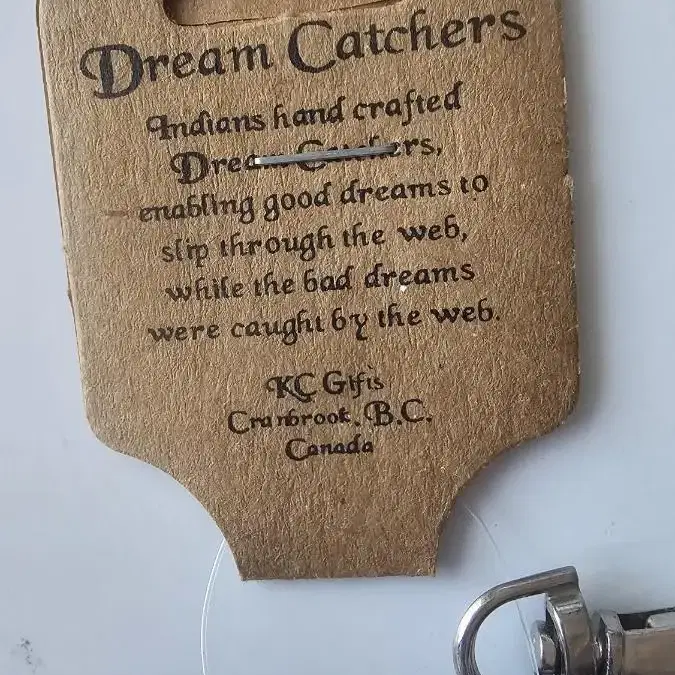 Dream Catchers
Indians hand crafted
Dream Catchers,
enabling good dreams to
slip through the web,
while the bad dreams
were caught by the web.
KC Gifts
Cranbrook, B.C.
Canada